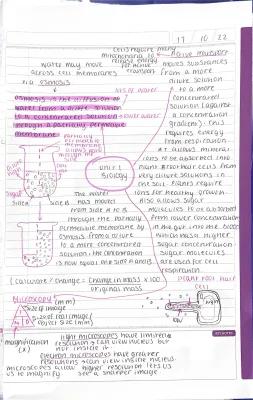 17 10 22
cells require many
mitochondria to
release energy
for active
transport
Active transport
moves substances
from a more
dilute solution
to a more
concentrated
solution (against
a concentration
gradient). This
requires energy
from respiration
It allows mineral
ions to be absorbed into
plant root hair cells from
very dilute solutions in
the soil. Plants require
ions for healthy growth.
Also allows sugar
molecules to be absorbed
from lower concentration
in the gut into the blood
which has a higher
sugar concentration
sugar molecules
are used for cell
respiration.
water may move
across cell membranes
via osmosis
lots of water
osmosis is the diffusion of
water from a dilute solution
to a concentrated solution
less water
through a partially permeable
membrane
partially
permeable
membrane
allows water
through the
Unit 1
Biology
sugar
side A
side B
The water
has moved
from side A to B
through the partially
permeable membrane by
osmosis from a dilute
to a more concentrated
solution, the concentration
is now equal on side A and B
(calculate % change = change in mass x 100
original mass
plant root hair
cell
Microscopy (mm)
size of image
size of real image/
object size (mm)
magnification
(x)
light microscopes have limited
resolution + can view nucleus but
not inside it
electron microscopes have greater
resolution + can view inside nucleus
microscopes allow us to magnify
higher resolution lets us
see a smaller image